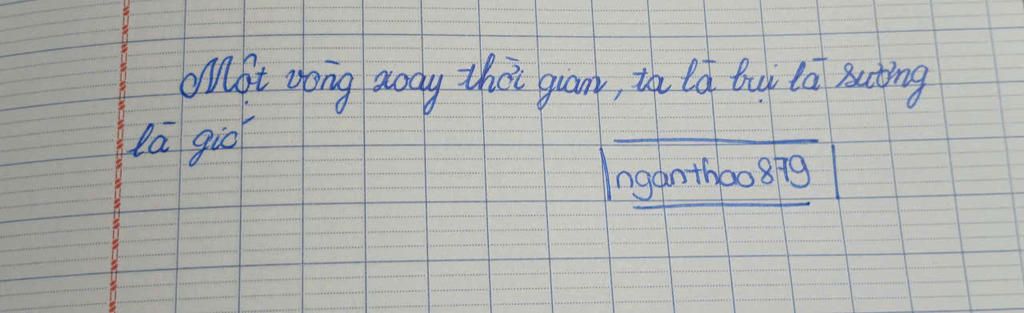 Một vòng xoay thời gian, ta là bụi là sương
là gió
nganthao879